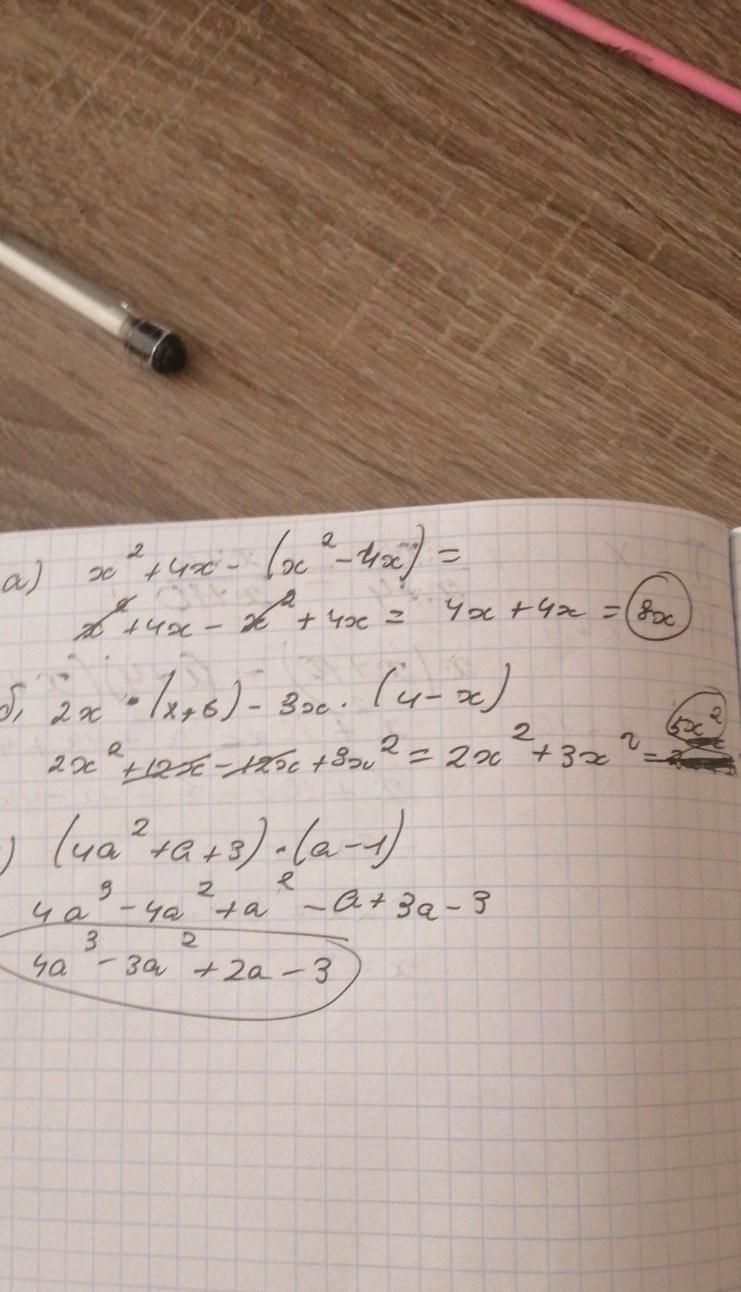 а) x² + 4x - (x² - 4x) =
x² + 4x - x² + 4x = 4x + 4x = 8x
б) 2x · (x + 6) - 3x · (4 - x)
2x² + 12x - 12x + 3x² = 2x² + 3x² = 5x²
) (4a² + a + 3) · (a - 1)
4a³ - 4a² + a² - a + 3a - 3
4a³ - 3a² + 2a - 3